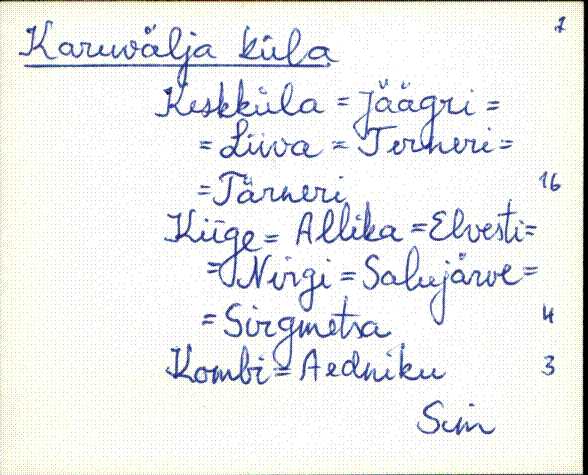 1
Karuvälja küla
Keskküla = Jäägri =
= Liiva = Terneri =
= Tärneri 16
Kiige = Allika = Elvesti =
= Nirgi = Salujärve =
= Sirgmetsa 4
Kombi = Aedniku 3
Sim